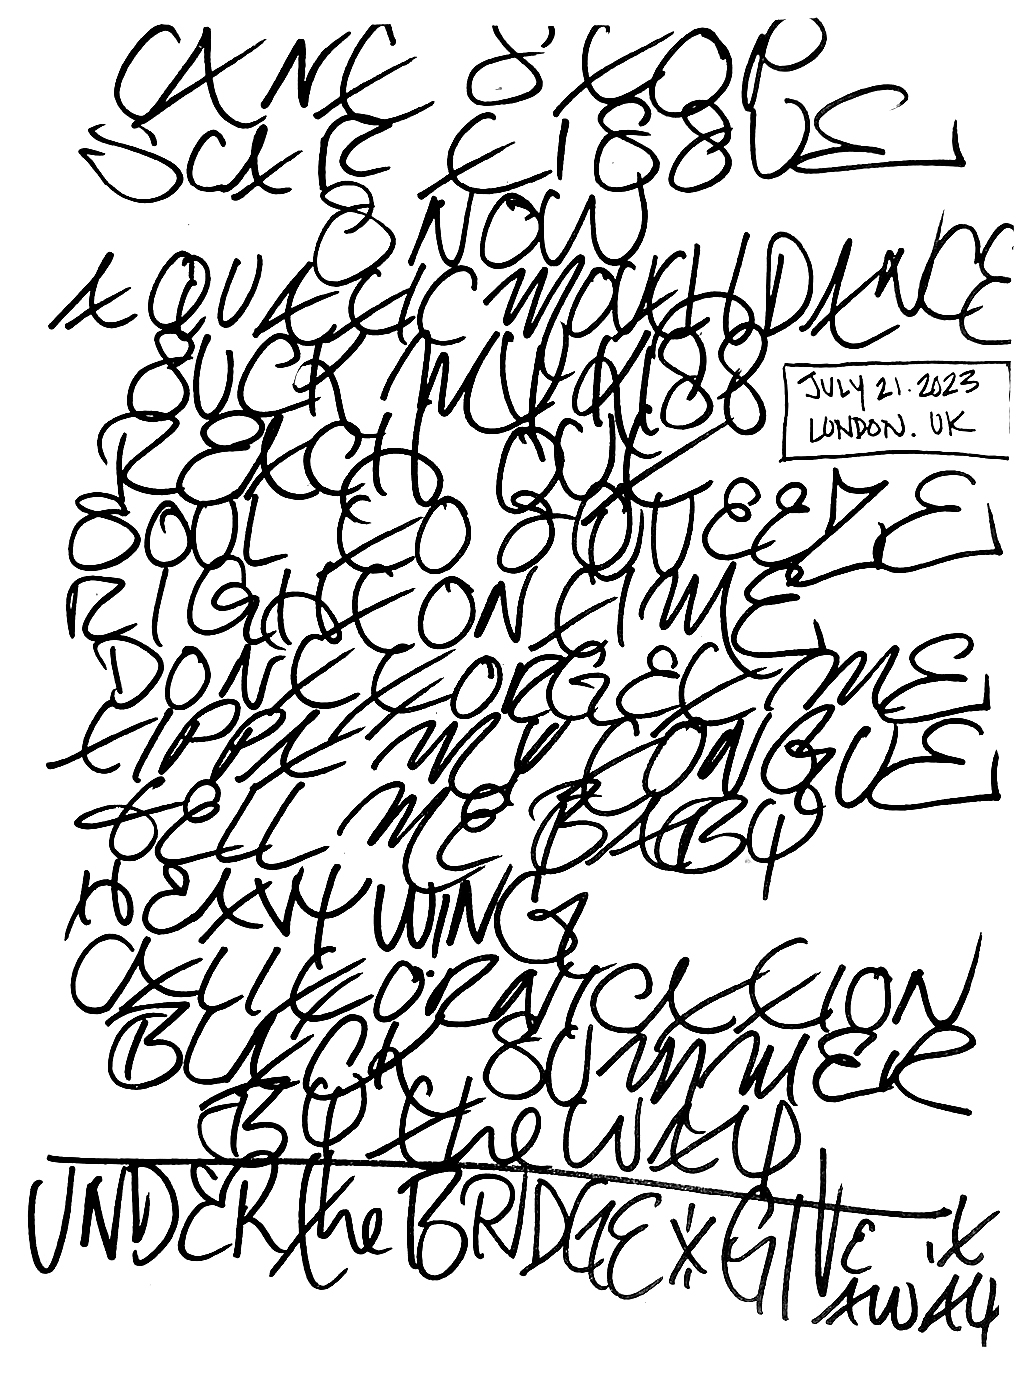 CANT STOP
SCAR TISSUE
SNOW
AQUATIC MOUTH DANCE
SUCK MY KISS
JULY 21.2023
LONDON. UK
REACH OUT
SOUL TO SQUEEZE
RIGHT ON TIME
DONT FORGET ME
TIPPA MY TONGUE
TELL ME BABY
HEAVY WING
CALIFORNICATION
BLACK SUMMER
BY the WAY
UNDER the BRIDGE X GIVE it
AWAY